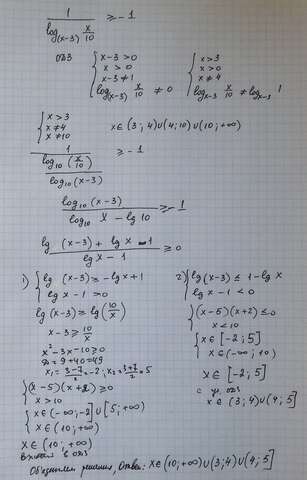 1 / log_(x-3) x/10 ≥ -1
ОДЗ { x-3>0 { x>3
x>0 x>0
x-3≠1 x≠4
log_(x-3) x/10 ≠ 0 log_(x-3) x/10 ≠ log_(x-3) 1
{ x>3
x≠4 x∈(3;4)∪(4;10)∪(10;+∞)
x≠10
1 / (log₁₀(x/10) / log₁₀(x-3)) ≥ -1
log₁₀(x-3) / (log₁₀ x - lg 10) ≥ -1
(lg (x-3) + lg x - 1) / (lg x - 1) ≥ 0
1) { lg (x-3) ≥ -lg x + 1
lg x - 1 > 0
lg (x-3) ≥ lg (10/x)
x-3 ≥ 10/x
x² - 3x - 10 ≥ 0
D = 9+40=49
x₁ = (3-7)/2 = -2; x₂ = (3+7)/2 = 5
{ (x-5)(x+2) ≥ 0
x > 10
{ x∈(-∞;-2]∪[5;+∞)
x∈(10;+∞)
x∈(10;+∞)
Входит в ОДЗ
2) { lg(x-3) ≤ 1 - lg x
lg x - 1 < 0
{ (x-5)(x+2) ≤ 0
x < 10
{ x∈[-2;5]
x∈(-∞;10)
x∈[-2;5]
с уч. ОДЗ
x∈(3;4)∪(4;5]
Объединяем решения, Ответ: x∈(10;+∞)∪(3;4)∪(4;5]